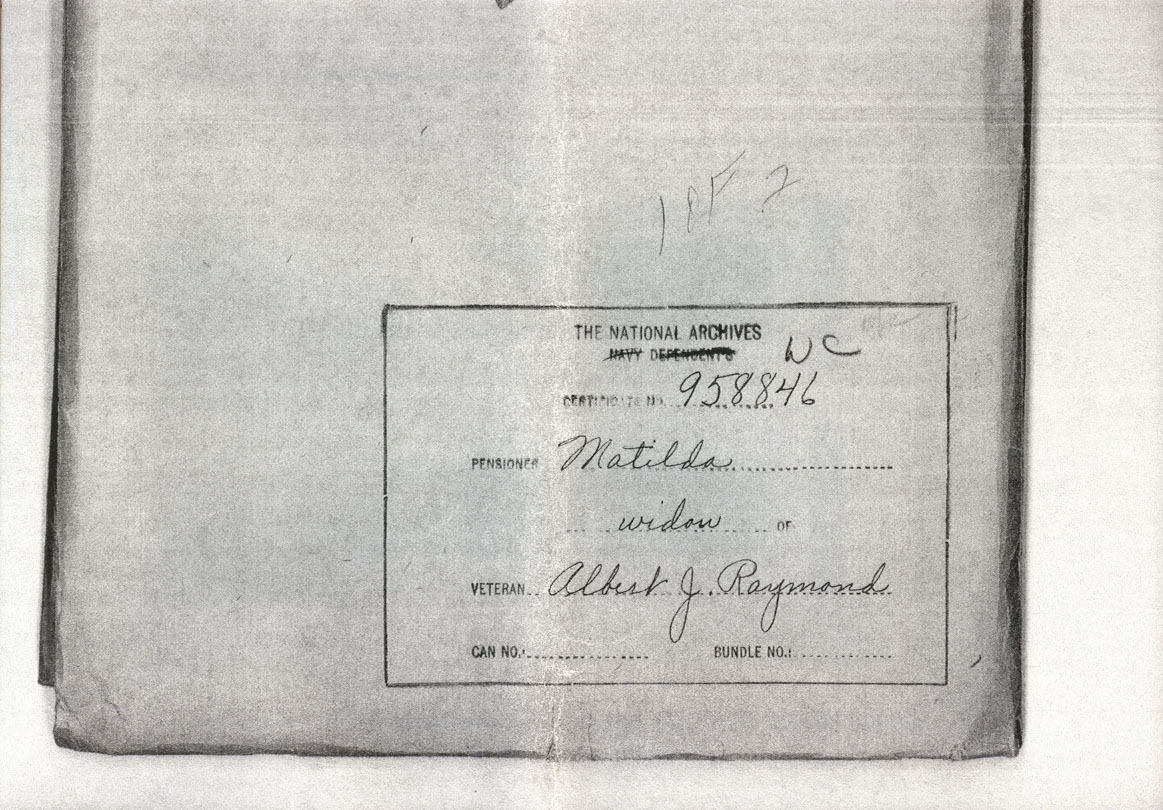 1 OF 2
THE NATIONAL ARCHIVES
NAVY DEPENDENTS WC
CERTIFICATE NO. 958846
PENSIONER Matilda
widow OF
VETERAN Albert J. Raymond
CAN NO. BUNDLE NO.